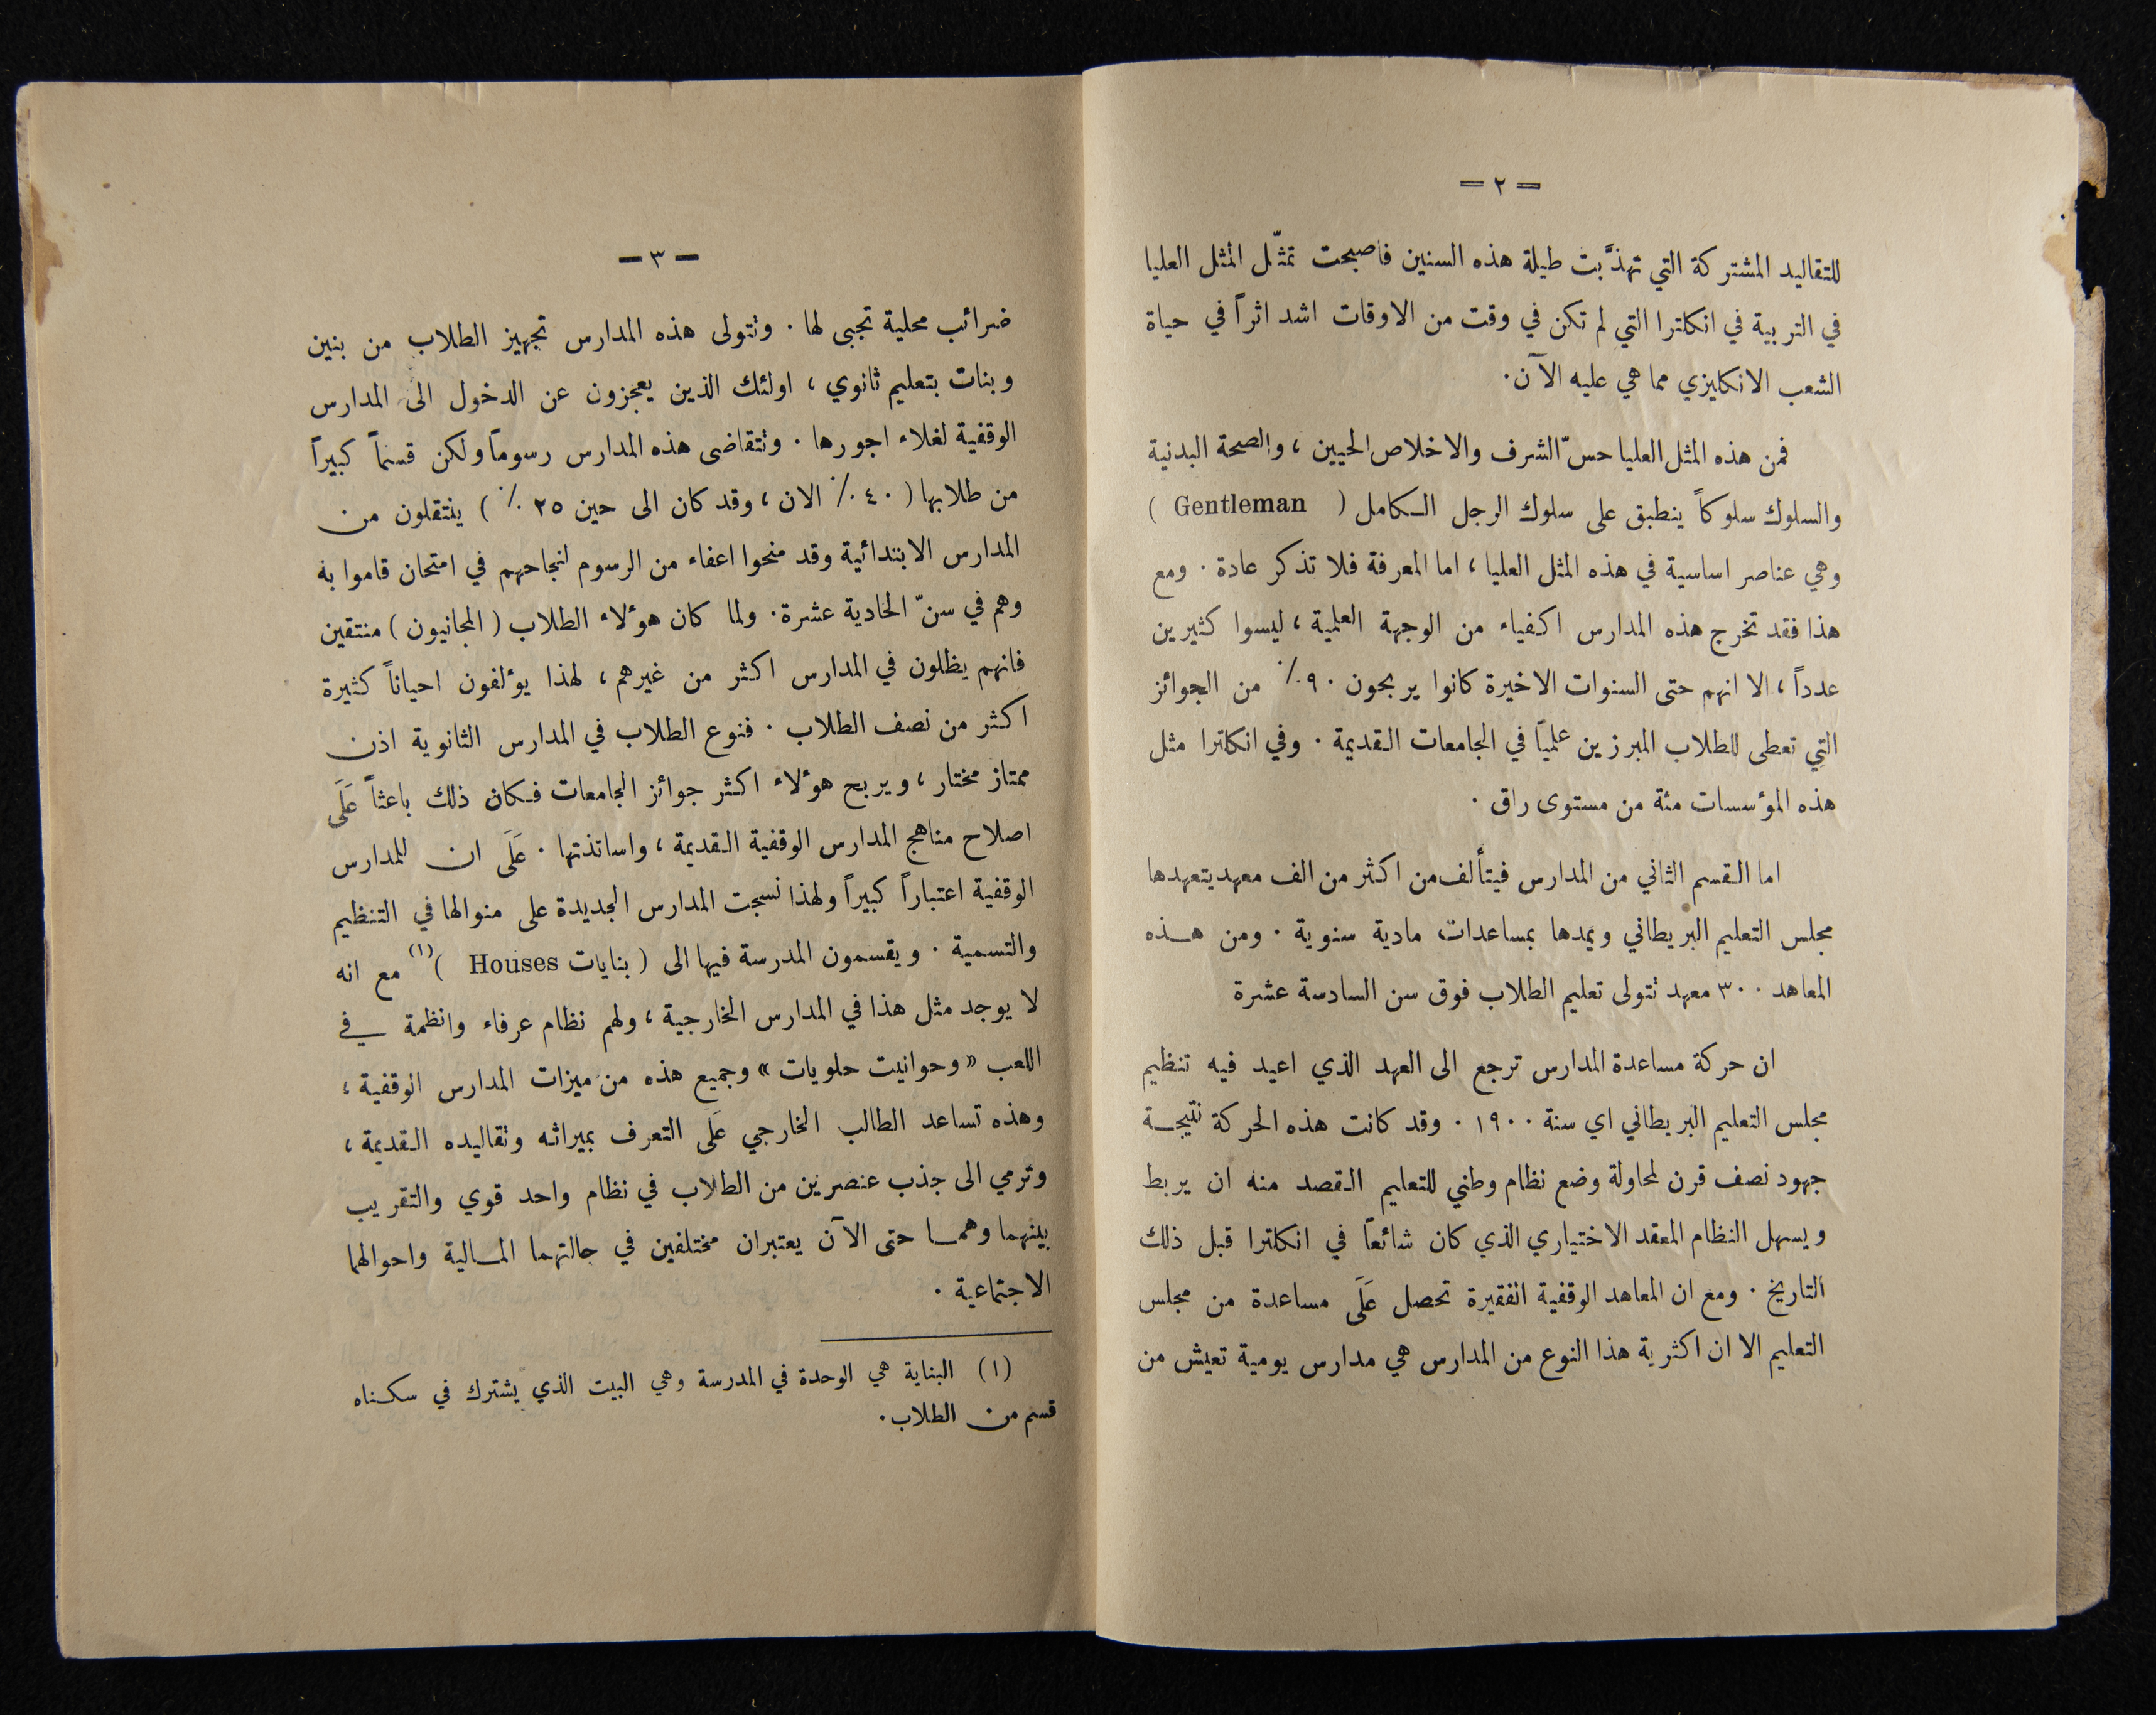 = ٢ =
للتقاليد المشتركة التي تهذَّبت طيلة هذه السنين فاصبحت تمثّل المثل العليا
في التربية في انكلترا التي لم تكن في وقت من الاوقات اشد اثراً في حياة
الشعب الانكليزي مما هي عليه الآن.
فمن هذه المثل العليا حسّ الشرف والاخلاص الحيين ، والصحة البدنية
والسلوك سلوكاً ينطبق على سلوك الرجل الكامل ( Gentleman )
وهي عناصر اساسية في هذه المثل العليا ، اما المعرفة فلا تذكر عادة . ومع
هذا فقد تخرج هذه المدارس اكفياء من الوجهة العلمية ، ليسوا كثيرين
عدداً ، الا انهم حتى السنوات الاخيرة كانوا يربحون ٩٠٪ من الجوائز
التي تعطى للطلاب المبرزين علمياً في الجامعات القديمة . وفي انكلترا مثل
هذه المؤسسات مئة من مستوى راق .
اما القسم الثاني من المدارس فيتألف من اكثر من الف معهد يتعهدها
مجلس التعليم البريطاني ويمدها بمساعدات مادية سنوية . ومن هذه
المعاهد ٣٠٠ معهد تتولى تعليم الطلاب فوق سن السادسة عشرة
ان حركة مساعدة المدارس ترجع الى العهد الذي اعيد فيه تنظيم
مجلس التعليم البريطاني اي سنة ١٩٠٠ . وقد كانت هذه الحركة نتيجة
جهود نصف قرن لمحاولة وضع نظام وطني للتعليم القصد منه ان يربط
ويسهل النظام المعقد الاختياري الذي كان شائعاً في انكلترا قبل ذلك
التاريخ . ومع ان المعاهد الوقفية الفقيرة تحصل عَلَى مساعدة من مجلس
التعليم الا ان اكثرية هذا النوع من المدارس هي مدارس يومية تعيش من
— ٣ —
ضرائب محلية تجبى لها . وتتولى هذه المدارس تجهيز الطلاب من بنين
وبنات بتعليم ثانوي ، اولئك الذين يعجزون عن الدخول الى المدارس
الوقفية لغلاء اجورها . وتتقاضى هذه المدارس رسوماً ولكن قسماً كبيراً
من طلابها ( ٤٠٪ الان ، وقد كان الى حين ٢٥ ٪ ) ينتقلون من
المدارس الابتدائية وقد منحوا اعفاء من الرسوم لنجاحهم في امتحان قاموا به
وهم في سنّ الحادية عشرة . ولما كان هؤلاء الطلاب ( المجانيون ) منتقين
فانهم يظلون في المدارس اكثر من غيرهم ، لهذا يؤلفون احياناً كثيرة
اكثر من نصف الطلاب . فنوع الطلاب في المدارس الثانوية اذن
ممتاز مختار ، ويربح هؤلاء اكثر جوائز الجامعات فكان ذلك باعثاً عَلَى
اصلاح مناهج المدارس الوقفية القديمة ، واساتذتها . عَلَى ان للمدارس
الوقفية اعتباراً كبيراً ولهذا نسجت المدارس الجديدة على منوالها في التنظيم
والتسمية . ويقسمون المدرسة فيها الى ( بنايات Houses )(١) مع انه
لا يوجد مثل هذا في المدارس الخارجية ، ولهم نظام عرفاء وانظمة في
اللعب « وحوانيت حلويات » وجميع هذه من ميزات المدارس الوقفية ،
وهذه تساعد الطالب الخارجي عَلَى التعرف بميراثه وتقاليده القديمة ،
وترمي الى جذب عنصرين من الطلاب في نظام واحد قوي والتقريب
بينهما وهما حتى الآن يعتبران مختلفين في حالتهما المالية واحوالهما
الاجتماعية .
(١) البناية هي الوحدة في المدرسة وهي البيت الذي يشترك في سكناه
قسم من الطلاب.